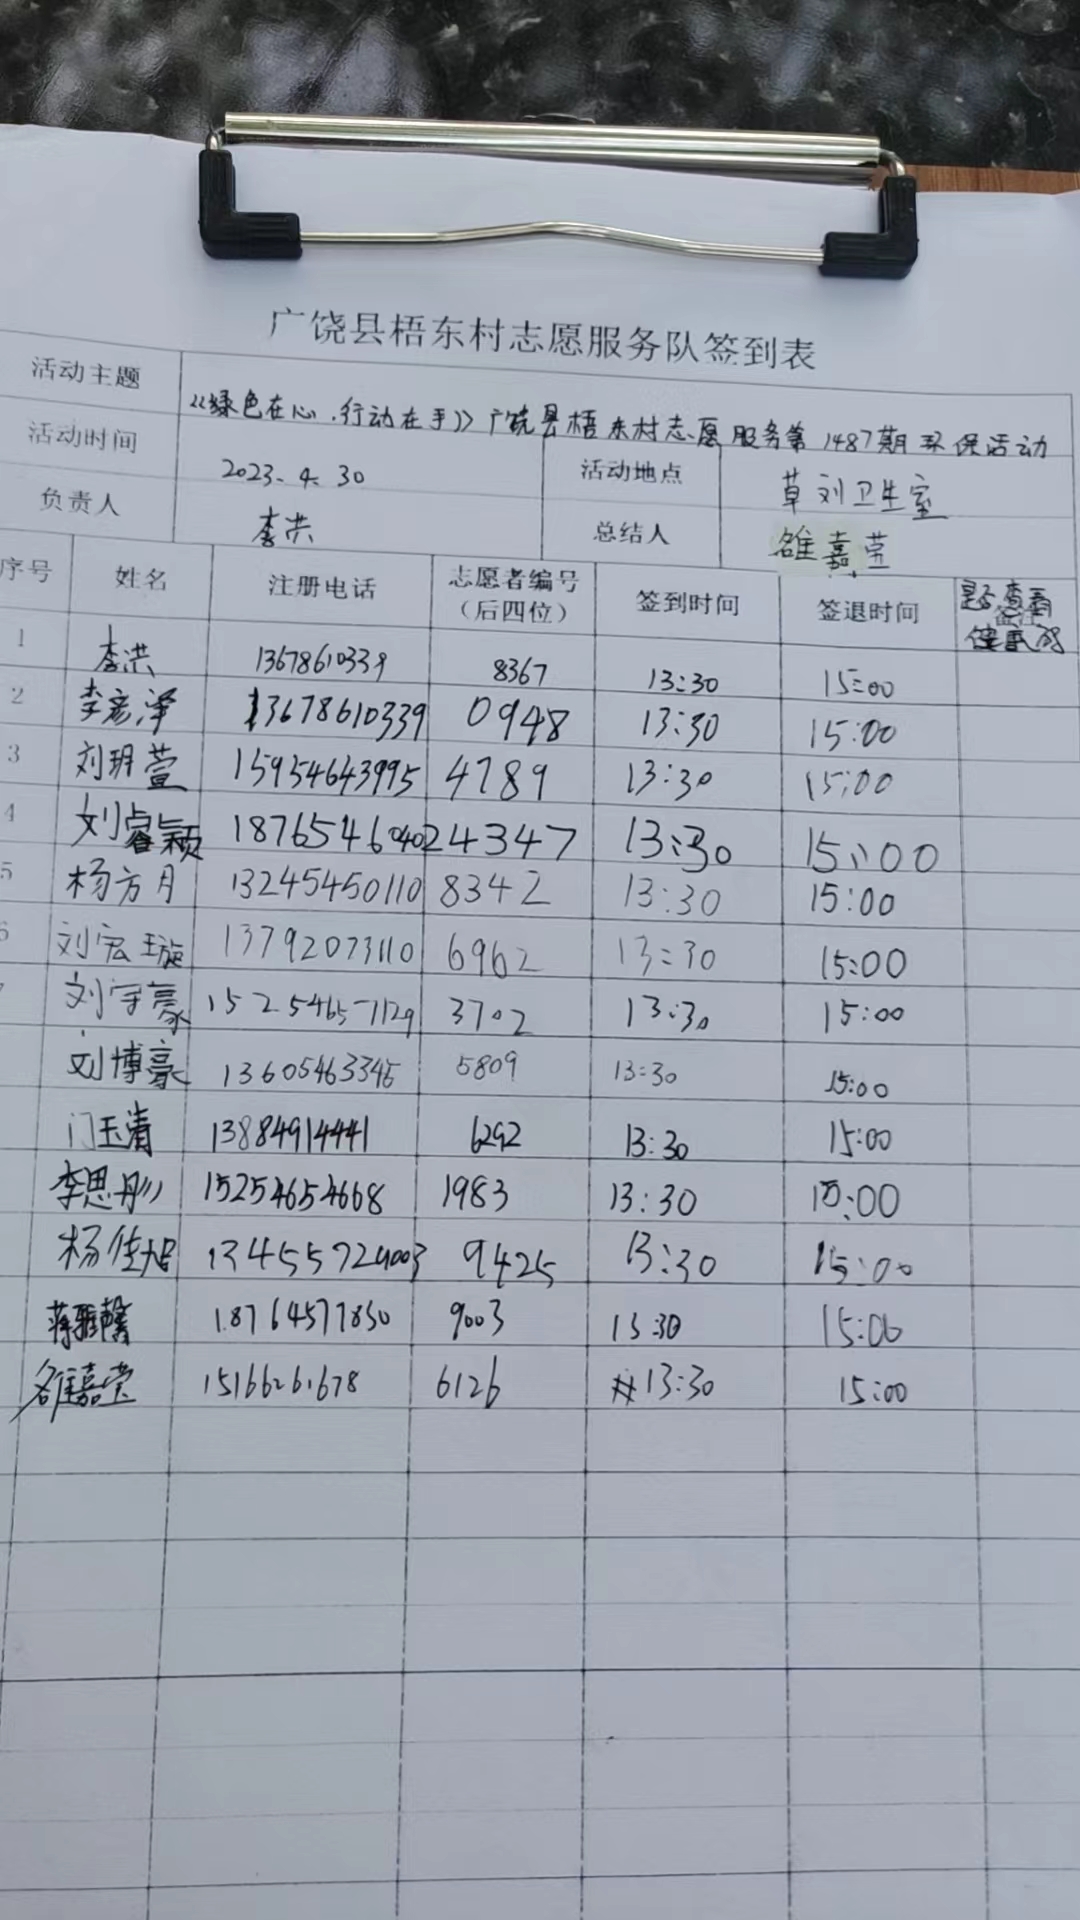 广饶县梧东村志愿服务队签到表
活动主题 《绿色在心.行动在手》广饶县梧东村志愿服务第1487期环保活动
活动时间 2023.4.30 活动地点 草刘卫生室
负责人 李洪 总结人 雒嘉莹
序号 姓名 注册电话 志愿者编号（后四位） 签到时间 签退时间 是否查看健康码
1 李洪 13678610339 8367 13:30 15:00
2 李彦泽 13678610339 0948 13:30 15:00
3 刘玥萱 15954643995 4789 13:30 15:00
4 刘睿颖 18765460402 4347 13:30 15:00
5 杨方月 13245450110 8342 13:30 15:00
6 刘宏璇 13792073110 6962 13:30 15:00
7 刘宇豪 15254657129 3702 13:30 15:00
刘博豪 13605463345 5809 13:30 15:00
门玉清 13884914441 6292 13:30 15:00
李思彤 15254654668 1983 13:30 15:00
杨佳旭 13455724003 9425 13:30 15:00
蒋雅馨 18764577850 9003 13:30 15:00
雒嘉莹 15166261678 6126 13:30 15:00